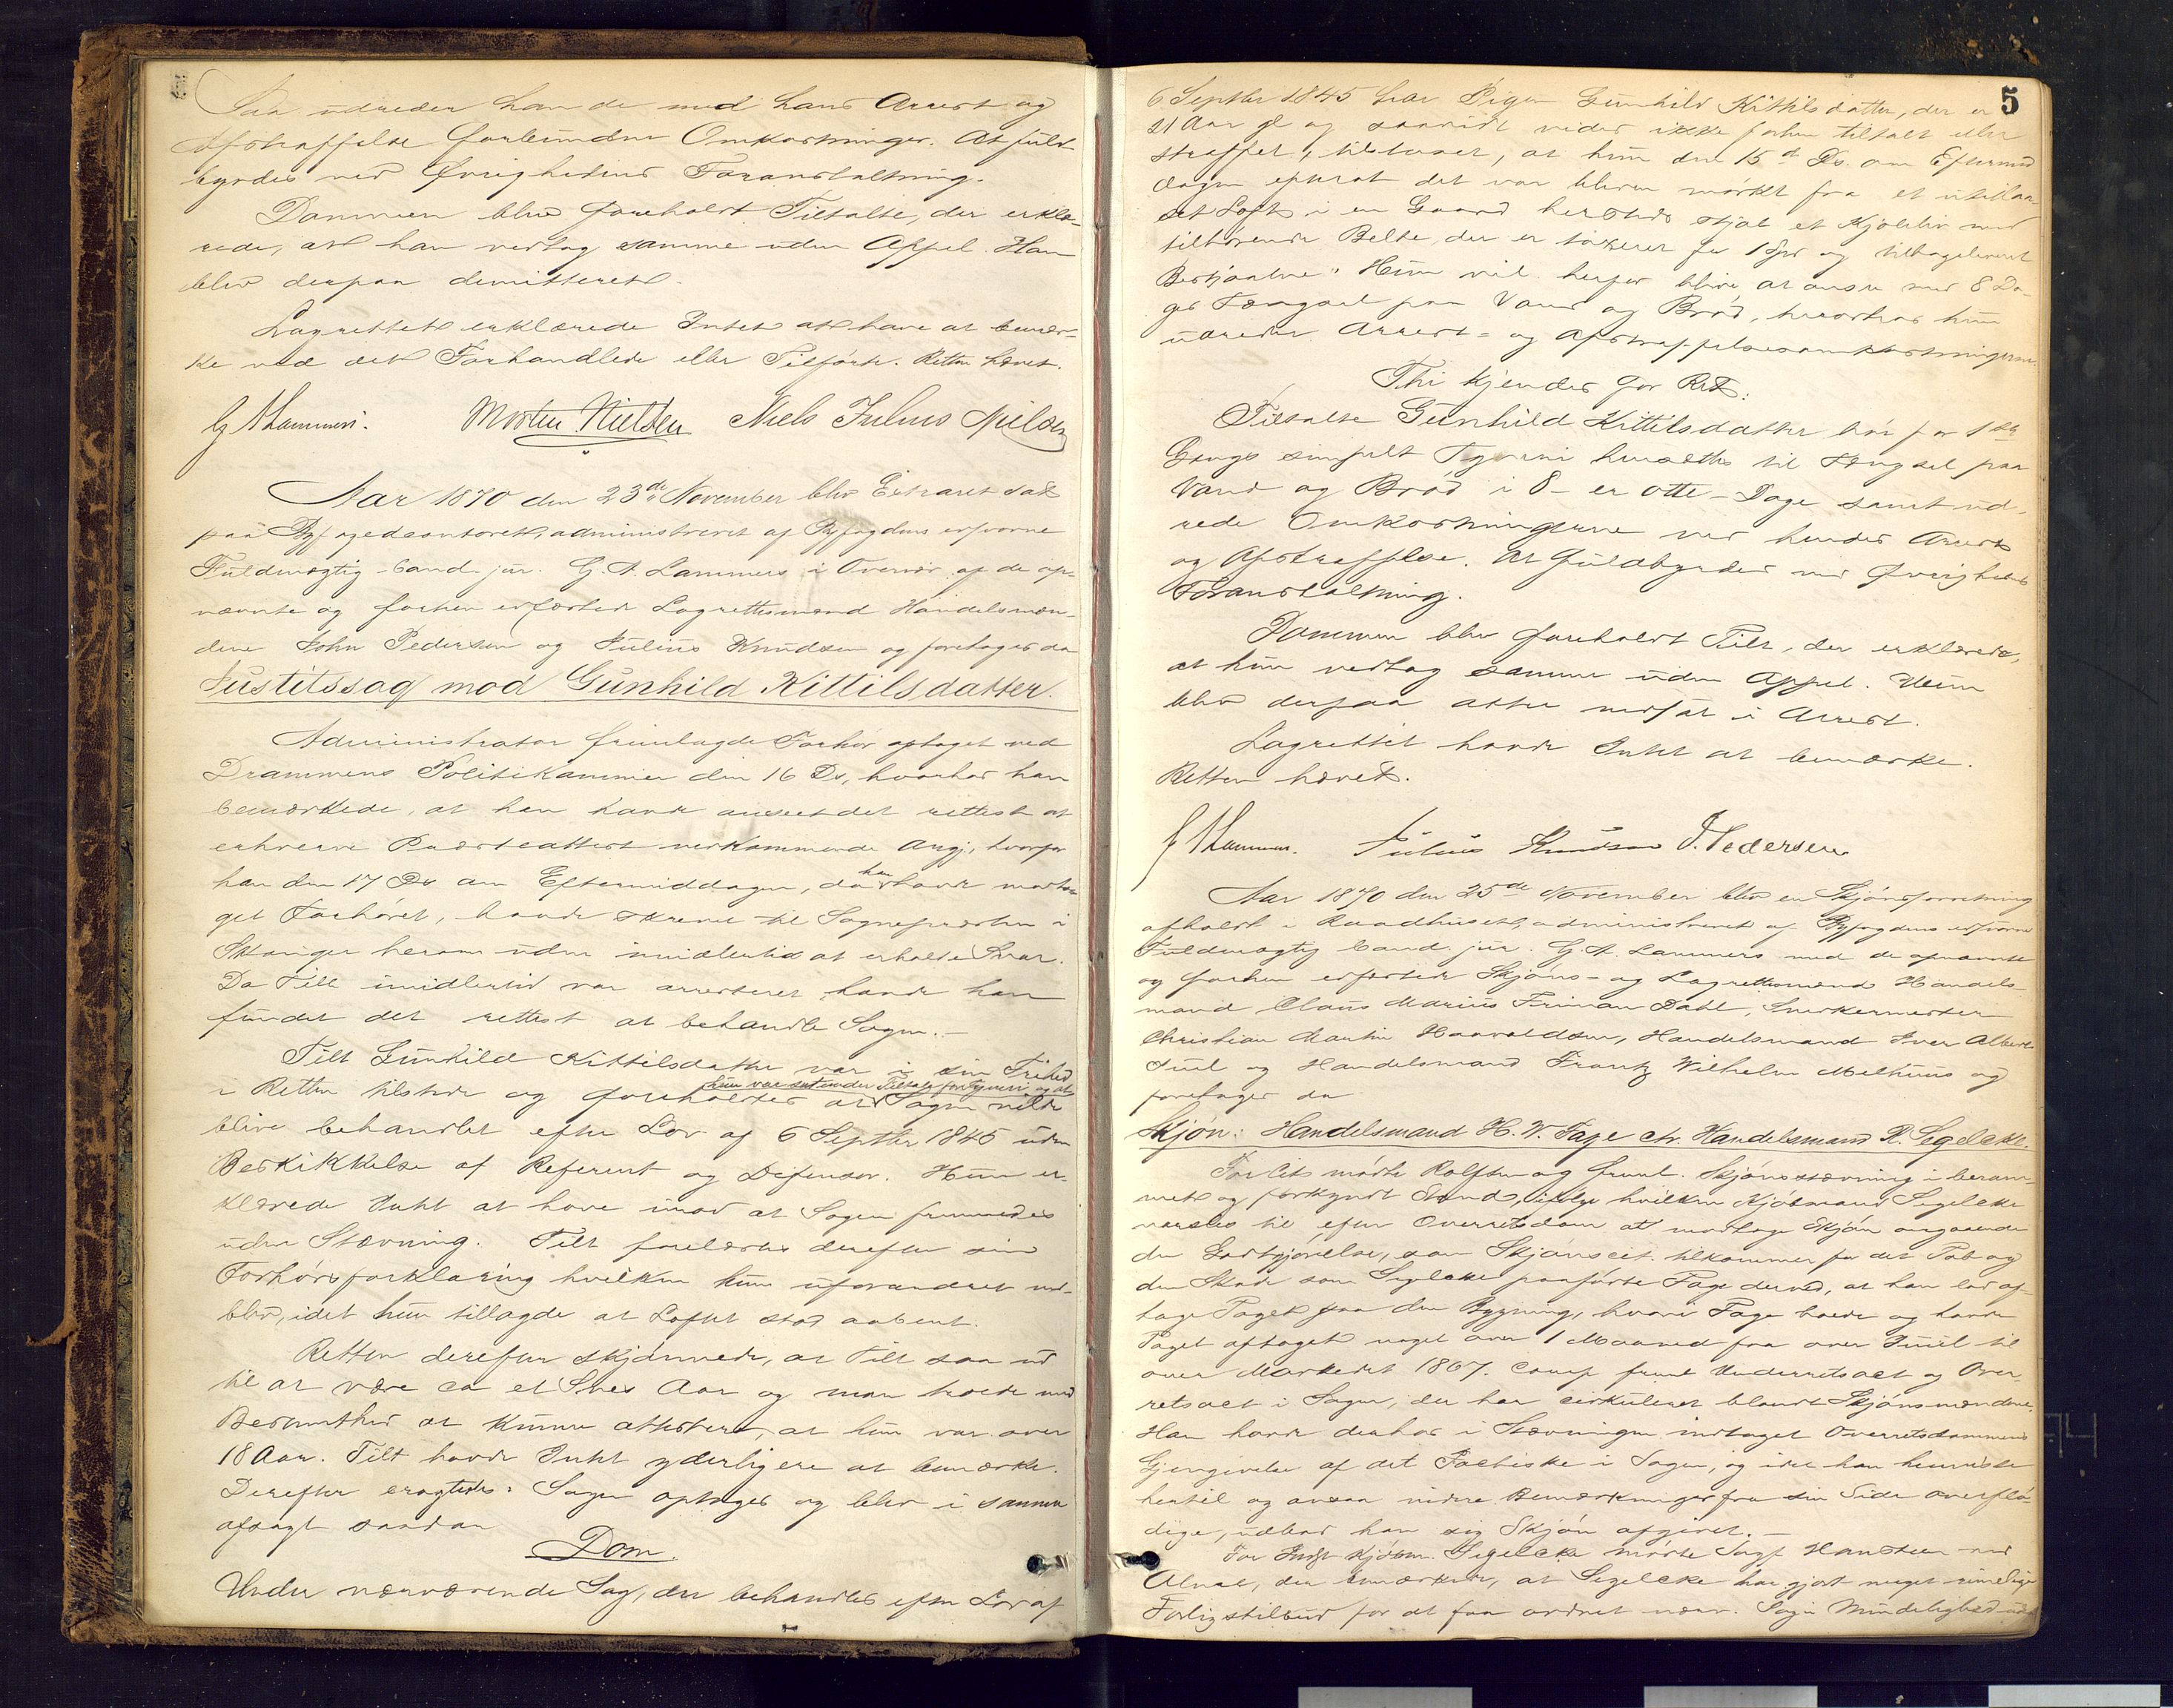 Saa udreder han de med hans Arrest og
Afstraffelse forbundne Omkostninger. At fuld-
byrdes ved Øvrighedens Foranstaltning.
Dommen blev foreholdt Tiltalte, der erklæ-
rede, at han vedtog samme uden Appel. Han
blev derpaa demitteret.
Lagrettet erklærede Intet at have at bemær-
ke ved det Forhandlede eller Tilførte. Retten hævet.
G A Lammers. Morten Nielsen Niels Julius Nielsen
Aar 1870 den 23de November blev Extraret sat
paa Byfogedcontoret, administreret af Byfogdens edsvorne
Fuldmægtig Cand. jur. G. A. Lammers i Overvær af de op-
nævnte og forhen edfæstede Lagrettesmænd Handelsmæn-
dene John Pedersen og Julius Knudsen og foretoges da
Justitssag mod Gunhild Kittilsdatter.
Administrator fremlagde Forhør optaget ved
Drammens Politikammer den 16 Ds, hvorhos han
bemærkede, at han havde anseet det rettest at
erhverve Præsteattest vedkommende Angj., hvorfor
han den 17 Ds om Eftermiddagen, da han havde modta-
get Forhøret, havde skrevet til Sognepræsten i
herom uden imidlertid at erholde Svar.
Da Tilt imidlertid var arresteret havde han
fundet det rettest at behandle Sagen.-
Tilt Gunhild Kittilsdatter var i sin Frihed
hun var sat under Tiltale for Tyveri og at
i Retten tilstede og foreholdtes at Sagen vilde
blive behandlet efter Lov af 6 Septbr 1845 uden
Beskikkelse af Referent og Defensor. Hun er-
klærede Intet at have imod at Sagen fremmedes
uden Stævning. Tilt forelæstes derefter sin
Forhørsforklaring hvilken hun uforandret ved-
blev, idet hun tillagde at Loftet stod aabent.
Retten derefter skjønnede, at Tilt saa ud
til at være ca et Snes Aar og man troede med
Bestemthed at kunne attestere, at hun var over
18 Aar. Tilt havde Intet yderligere at bemærke.
Derefter eragtedes: Sagen optages og blev i samme
afsagt saadan
Dom.
Under nærværende Sag, der behandles efter Lov af
5
6 Septbr 1845 har Pigen Gunhild Kittilsdatter, der er
21 Aar gl og saavidt vides ikke forhen tiltalt eller
straffet, tilstaaet, at hun den 15d Ds. om Eftermid-
dagen efterat det var bleven mørkt fra et utillaa-
set Loft i en Gaard hersteds stjal et Kjoleliv med
tilhørende Belte, der er taxeret for 1 Spd og tilbageleveret
Bestjaalne. Hun vil herfor blive at ansee med 8 Da-
ges Fængsel paa Vand og Brød, hvorhos hun
udreder Arrest- og Afstraffelsesomkostningerne.
Thi kjendes for Ret:
Tiltalte Gunhild Kittilsdatter bør for 1ste
Gangs simpelt Tyveri hensættes til Fængsel paa
Vand og Brød i 8 - er otte - Dage samt ud-
rede Omkostningerne ved hendes Arrest
og Afstraffelse. At fuldbyrdes ved Øvrighedens
Foranstaltning.
Dommen blev foreholdt Tilt, der erklærede,
at hun vedtog samme uden Appel. Hun
blev derpaa atter nedsat i Arrest.
Lagrettet havde Intet at bemærke.
Retten hævet.
G A Lammers. Julius Knudsen J. Pedersen
Aar 1870 den 25de November blev en Skjønsforretning
afholdt i Raadhuset, administreret af Byfogdens edsvorne
Fuldmægtig Cand. jur. G. A. Lammers med de opnævnte
og forhen edfæstede Skjøns- og Lagrettesmænd Handels-
mand Claus Marius Friman Dahl, Snedkermester
Christian Martin Haavaldsen, Handelsmand Iver Albert
Juul og Handelsmand Frantz Wilhelm Melhuus og
foretoges da
Skjøn: Handelsmand H. V. Fage ctr. Handelsmand R. Segelcke.
For Cit. mødte Rolfsen og freml. Skjønsstævning i beram-
met og forkyndt Stand, ifølge hvilken Kjøbmand Segelcke
varsles til efter Overretsdom at modtage Skjøn angaaende
den Godtgjørelse, som Skjønscit. tilkommer for det Tab og
den Skade som Segelcke paaførte Fage derved, at han lod af-
tage Taget paa den Bygning, hvori Fage boede og havde
Taget aftaget noget over 1 Maaned fra over Juul til
over Markedet 1867. Comp freml Underretsact og Over-
retsact i Sagen, der har cirkuleret blandt Skjønsmændene.
Han havde derhos i Stævningen indtaget Overretsdommens
Gjengivelse af det Factiske i Sagen, og idet han henviste
hertil og ansaa videre Bemærkninger fra sin Side overflø-
dige, udbad han sig Skjøn afgivet.-
For Indst Kjøbm. Segelcke mødte Sagf Hansteen ved
der bemærkede, at Segelcke har gjort meget rimelige
Forligstilbud for at faa ordnet nærv. Sag i Mindelighed